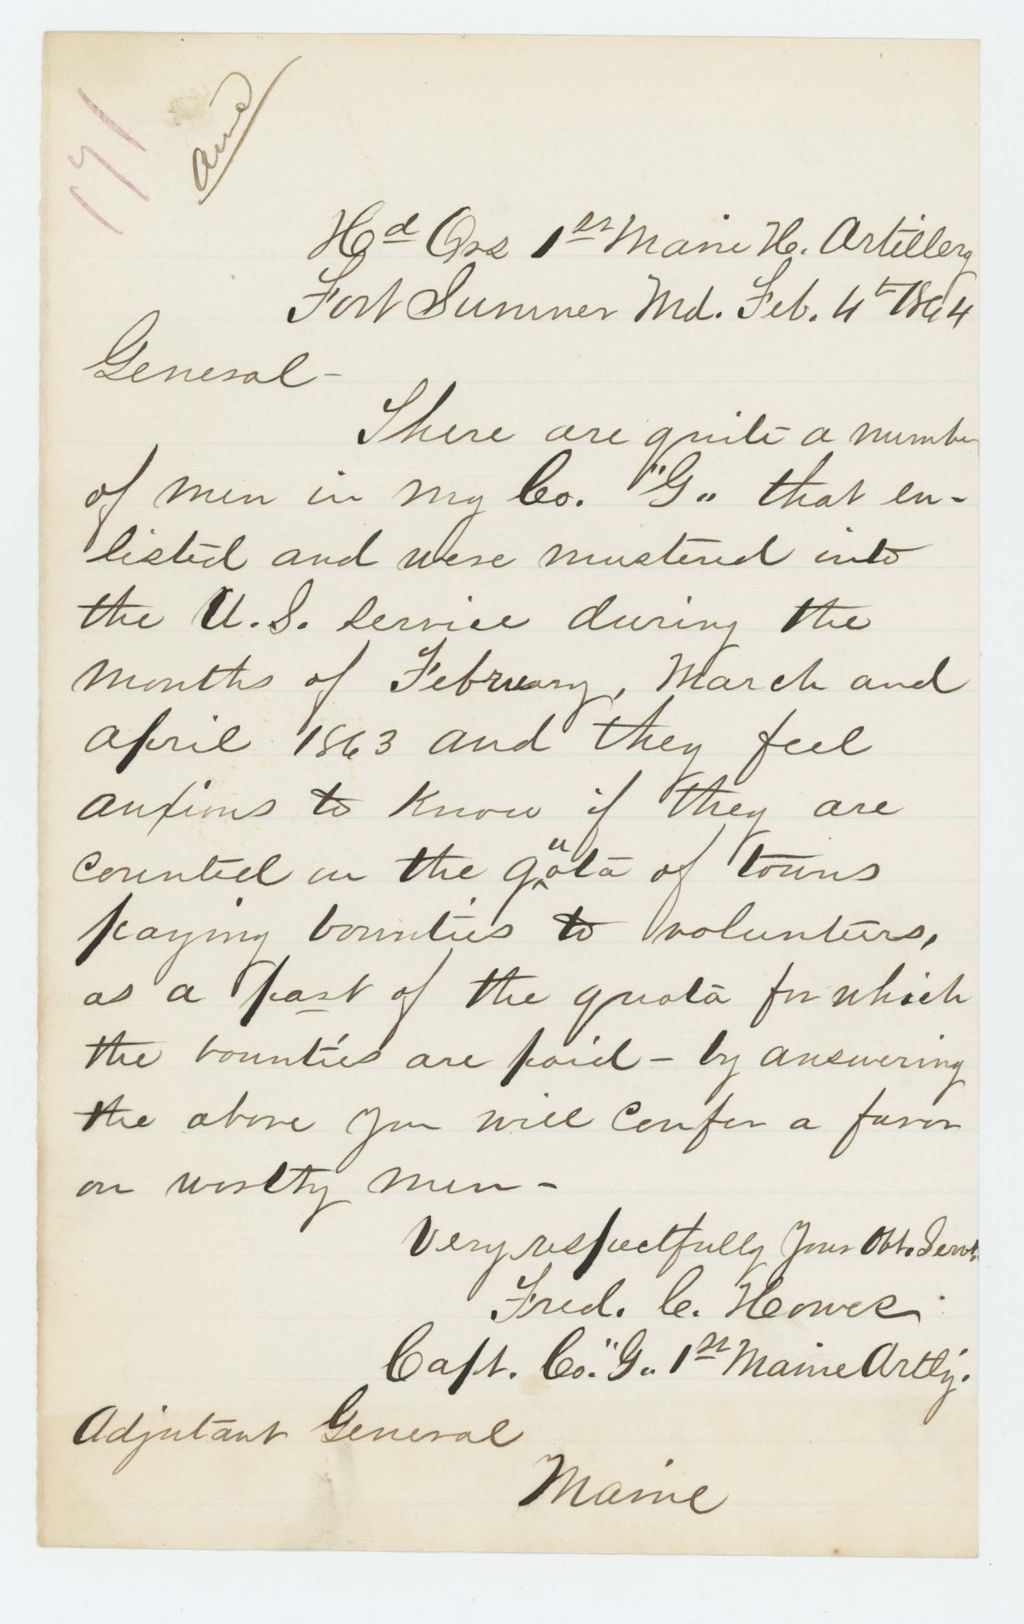 171
Ansd
Hd Qrs 1st Maine H. Artillery
Fort Sumner Md. Feb. 4th 1864
General -
There are quite a number
of men in my Co. "G" that en-
listed and were mustered into
the U.S. service during the
months of February, March and
April 1863 and they feel
anxious to know if they are
counted in the quota of towns
paying bounties to volunteers,
as a part of the quota for which
the bounties are paid - by answering
the above you will confer a favor
on worthy men -
Very respectfully Your Obt. Servt.
Fred. C. Howes
Capt. Co. "G" 1st Maine Artly.
Adjutant General
Maine